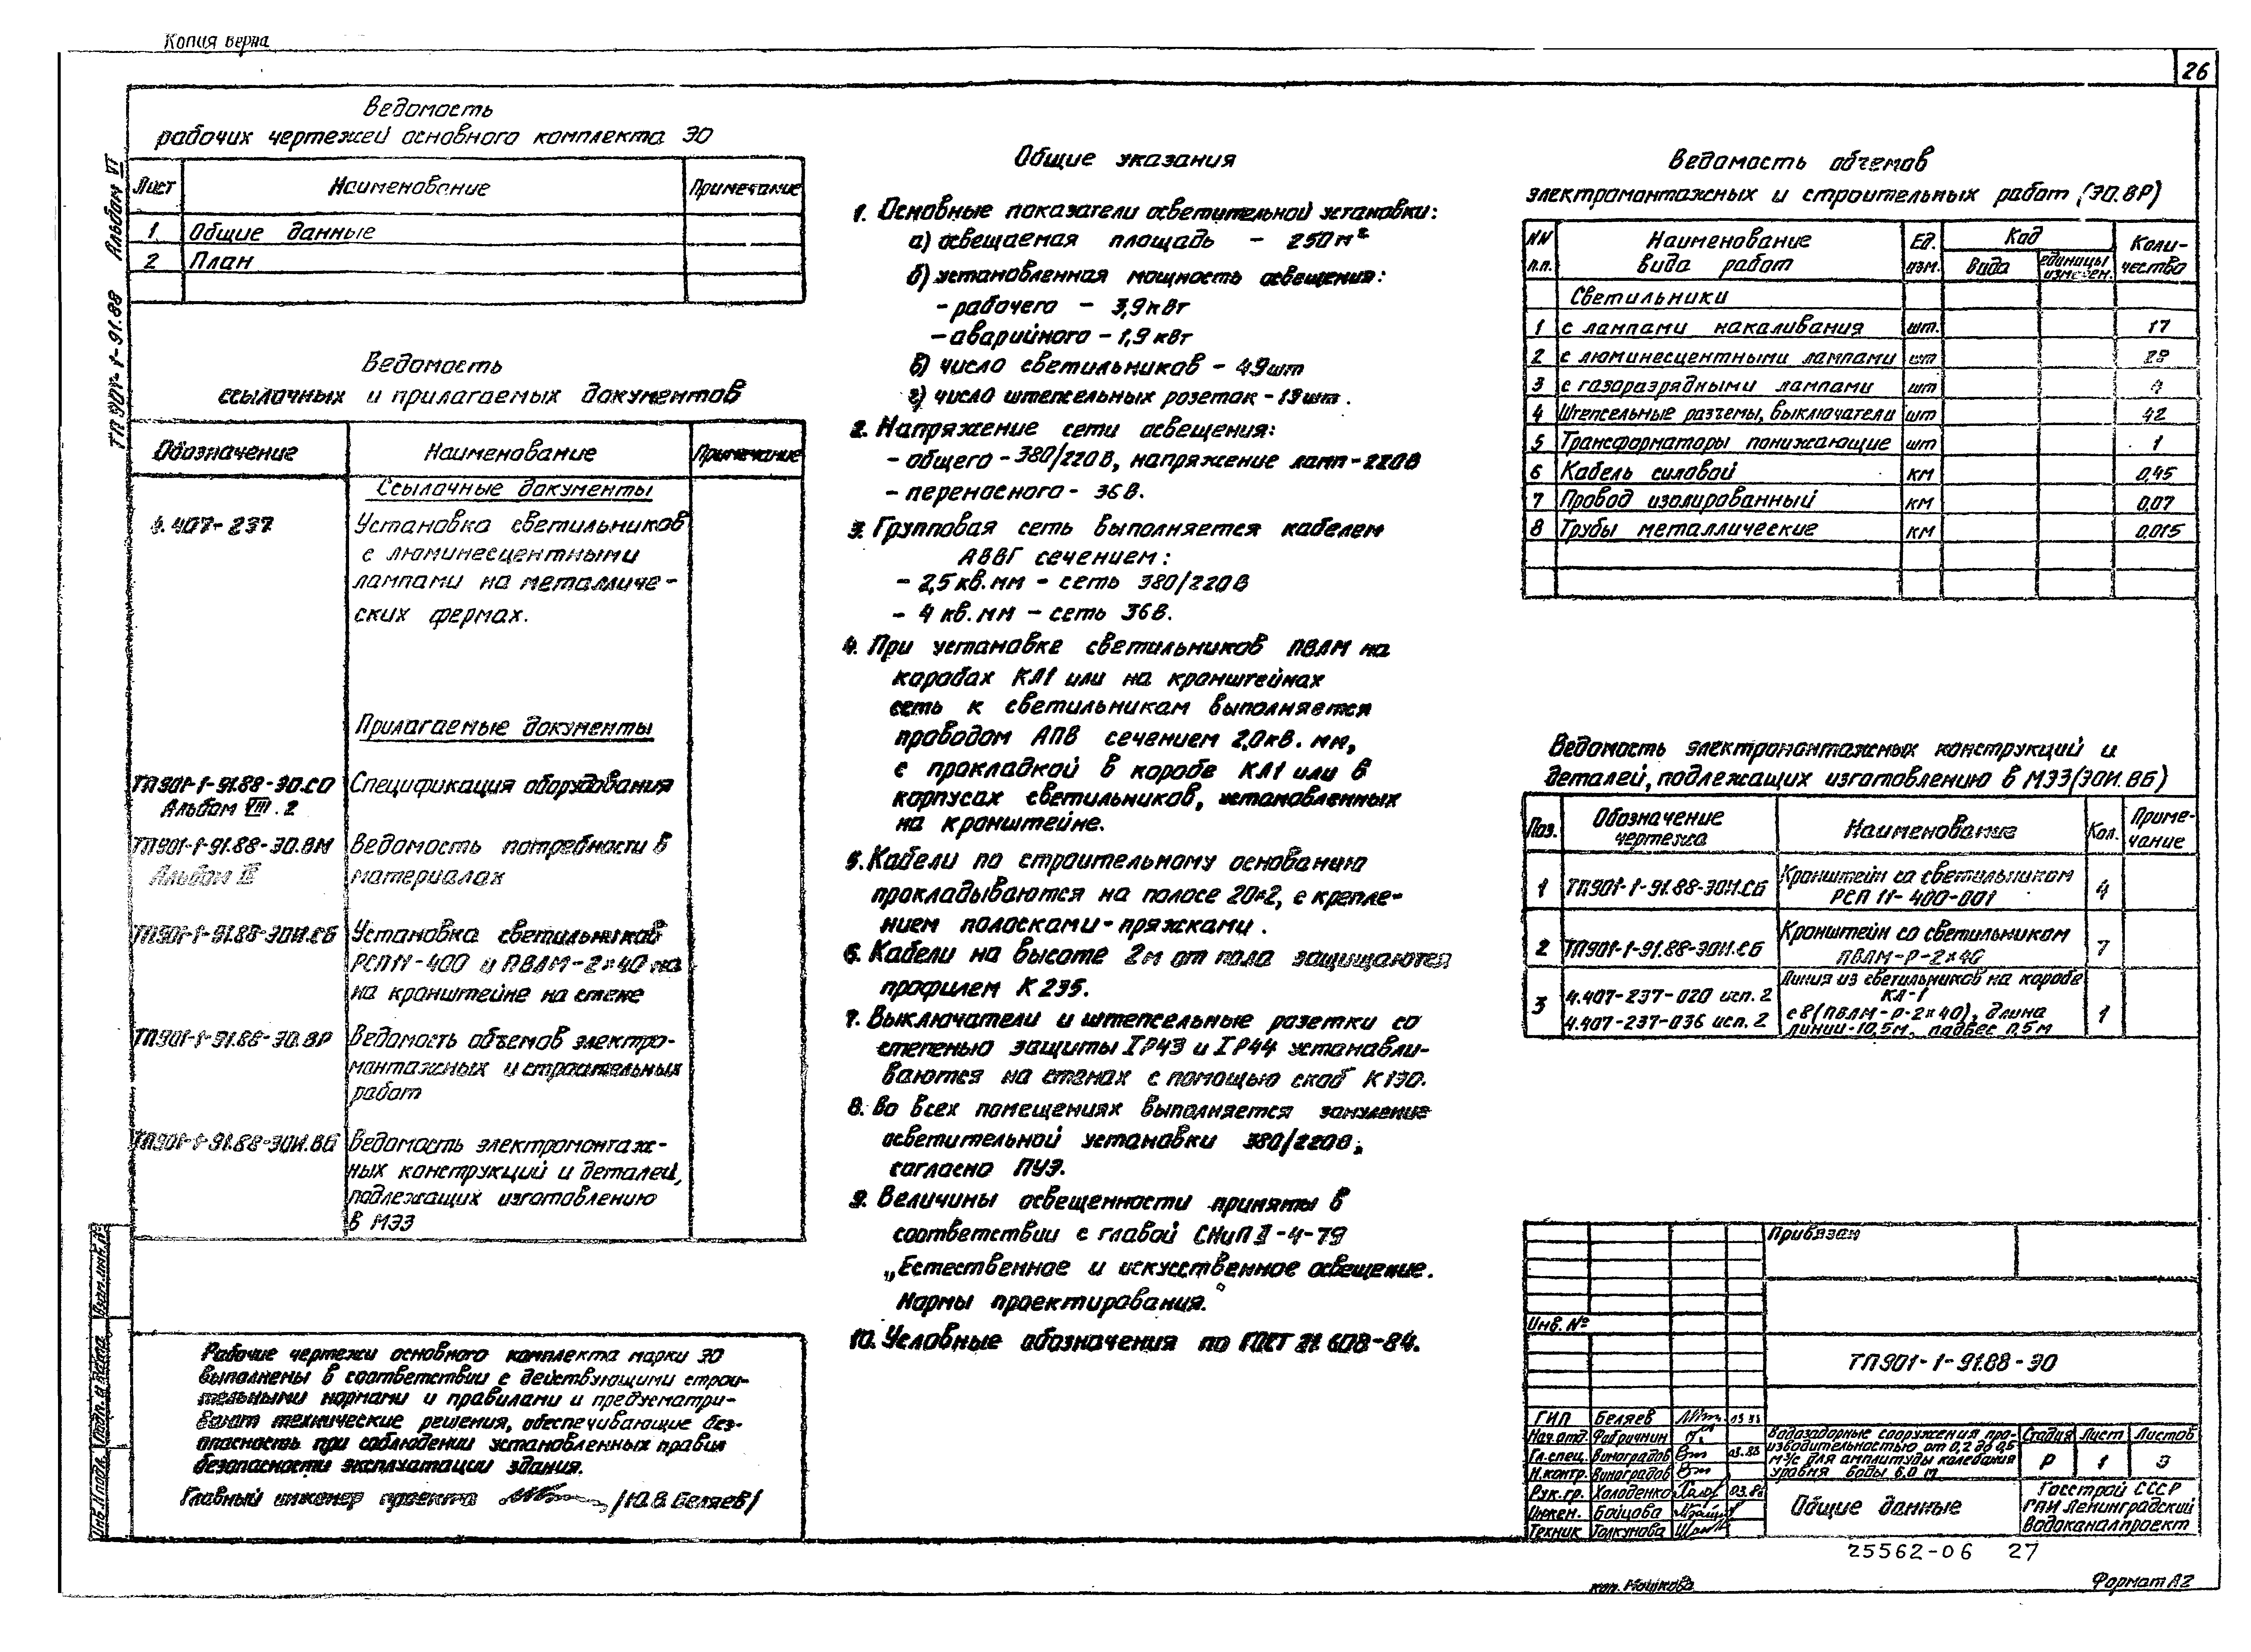 Копия верна
26
Альбом VI
ТП 901-1-91.88
Ведомость
рабочих чертежей основного комплекта ЭО
Лист Наименование Примечание
1 Общие данные
2 План
Ведомость
ссылочных и прилагаемых документов
Обозначение Наименование Примечание
Ссылочные документы
4.407-237 Установка светильников
с люминесцентными
лампами на металличе-
ских фермах.
Прилагаемые документы
ТП901-1-91.88-ЭО.СО Спецификация оборудования
Альбом VIII.2
ТП901-1-91.88-ЭО.ВМ Ведомость потребности в
Альбом материалах
ТП901-1-91.88-ЭОИ.СБ Установка светильников
РСП11-400 и ПВЛМ-2×40 на
на кронштейне на стене
ТП901-1-91.88-ЭО.ВР Ведомость объемов электро-
монтажных и строительных
работ
ТП901-1-91.88-ЭОИ.ВБ Ведомость электромонтаж-
ных конструкций и деталей,
подлежащих изготовлению
в МЭЗ
Рабочие чертежи основного комплекта марки ЭО
выполнены в соответствии с действующими строи-
тельными нормами и правилами и предусматри-
вают технические решения, обеспечивающие без-
опасность при соблюдении установленных правил
безопасности эксплуатации здания.
Главный инженер проекта /Ю.В. Беляев/
Взам.инв.№
Подп. и дата
Инв.№подл.
Общие указания
1. Основные показатели осветительной установки:
а) освещаемая площадь - 250 м²
б) установленная мощность освещения:
- рабочего - 3,9 кВт
- аварийного - 1,9 кВт
в) число светильников - 49 шт
г) число штепсельных розеток - 19 шт.
2. Напряжение сети освещения:
- общего - 380/220 В, напряжение ламп - 220В
- переносного - 36 В.
3. Групповая сеть выполняется кабелем
АВВГ сечением:
- 2,5 кв.мм - сеть 380/220 В
- 4 кв.мм - сеть 36 В.
4. При установке светильников ПВЛМ на
коробах КЛ1 или на кронштейнах
сеть к светильникам выполняется
проводом АПВ сечением 2,0 кв. мм,
с прокладкой в коробе КЛ1 или в
корпусах светильников, установленных
на кронштейне.
5. Кабели по строительному основанию
прокладываются на полосе 20×2, с крепле-
нием полосками-пряжками.
6. Кабели на высоте 2м от пола защищаются
профилем К 235.
7. Выключатели и штепсельные розетки со
степенью защиты IP43 и IP44 устанавли-
ваются на стенах с помощью скоб К
8. Во всех помещениях выполняется зануление
осветительной установки 380/220В,
согласно ПУЭ.
9. Величины освещенности приняты в
соответствии с главой СНиП II-4-79
„Естественное и искусственное освещение.
Нормы проектирования."
10. Условные обозначения по ГОСТ 21 608-84.
Ведомость объемов
электромонтажных и строительных работ (ЭО.ВР)
NN Наименование Ед. Код Коли-
п.п. вида работ изм. вида единицы измерен. чество
Светильники
1 с лампами накаливания шт. 17
2 с люминесцентными лампами шт 28
3 с газоразрядными лампами шт 4
4 Штепсельные разъемы, выключатели шт 42
5 Трансформаторы понижающие шт 1
6 Кабель силовой км 0,45
7 Провод изолированный км 0,07
8 Трубы металлические км 0,015
Ведомость электромонтажных конструкций и
деталей, подлежащих изготовлению в МЭЗ (ЭОИ.ВБ)
Поз. Обозначение чертежа Наименование Кол. Приме-чание
1 ТП901-1-91.88-ЭОИ.СБ Кронштейн со светильником
РСП 11-400-001 4
2 ТП901-1-91.88-ЭОИ.СБ Кронштейн со светильником
ПВЛМ-Р-2×40 7
3 4.407-237-020 исп. 2 Линия из светильников на коробе
КЛ-1
4.407-237-036 исп. 2 с 8 (ПВЛМ-Р-2×40), длина
линии-10,5м, подвес 0,5м 1
Привязан
Инв. №
ТП901-1-91.88-ЭО
ГИП Беляев
Нач.отд. Фабричнин
Гл.спец. Виноградов 03.88
Н.контр. Виноградов
Рук.гр. Холоденко 03.88
Инжен. Бойцова
Техник Толкунова
Водозаборные сооружения про-
изводительностью от 0,2 до 0,5
м³/с для амплитуды колебания
уровня воды 6,0 м
Стадия Лист Листов
Р 1 3
Общие данные
Госстрой СССР
ГПИ Ленинградский
Водоканалпроект
25562-06 27
коп. Машкова
Формат А2